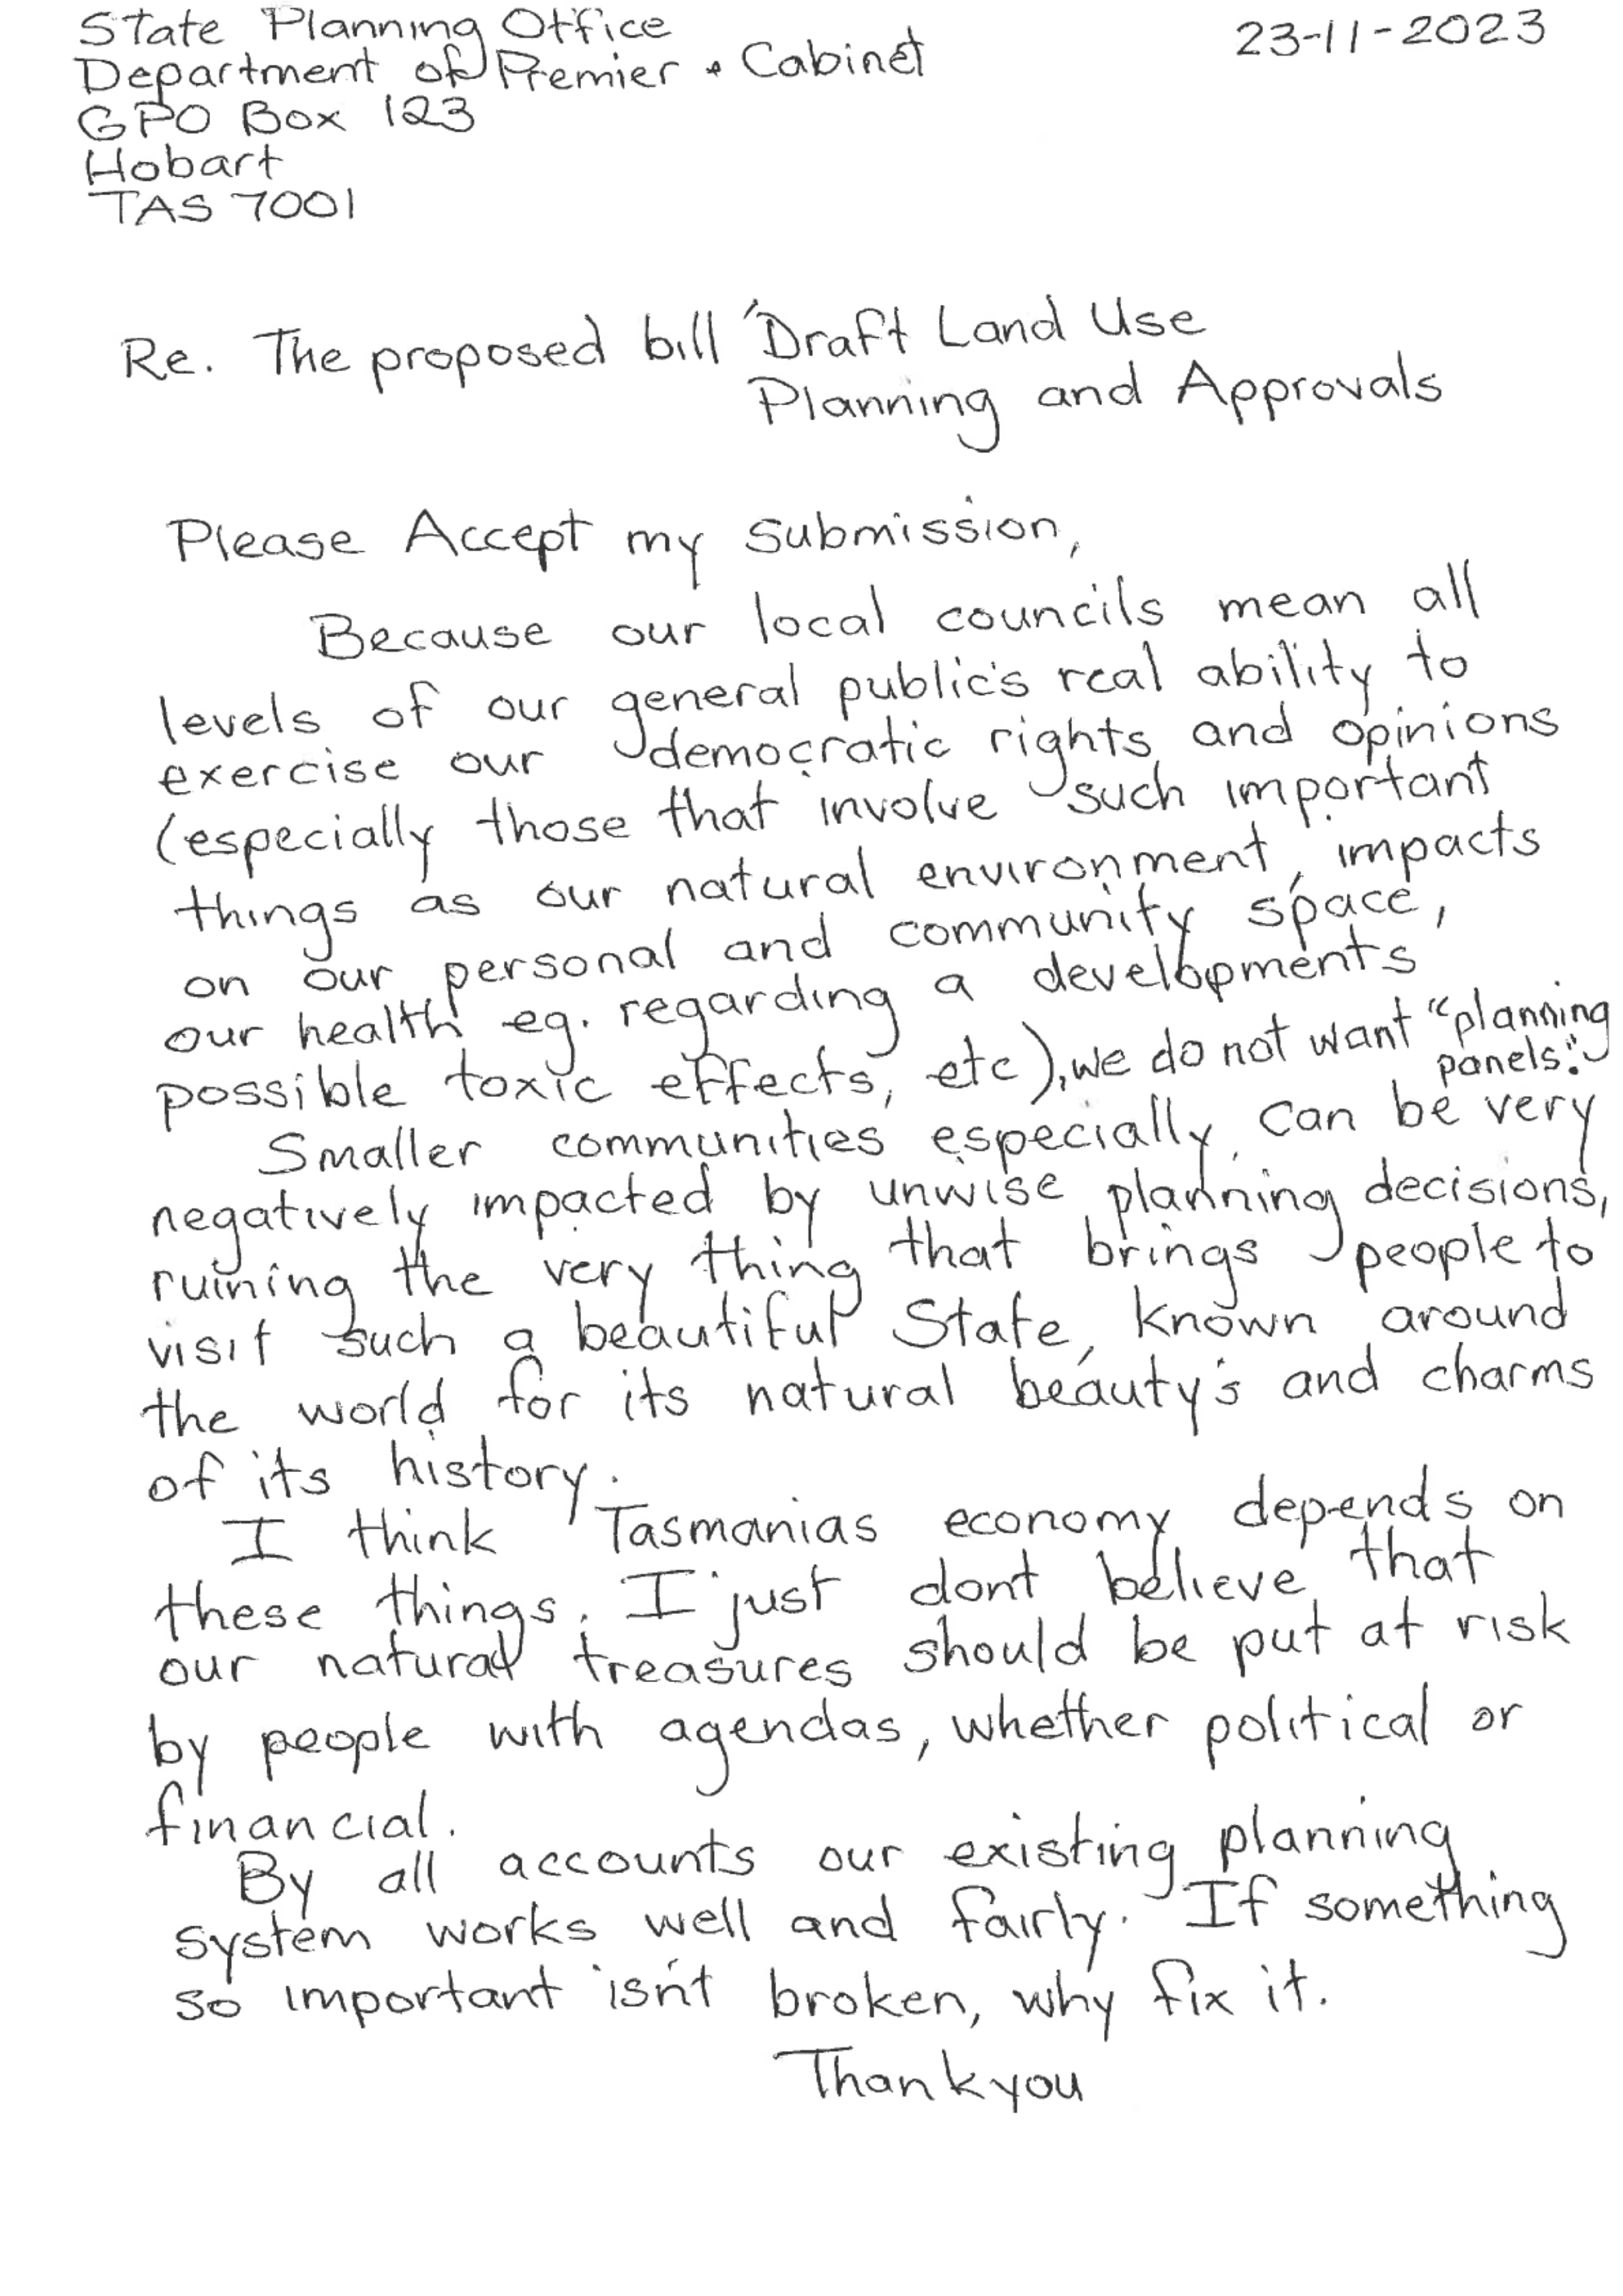 State Planning Office
23-11-2023
Department of Premier + Cabinet
GPO Box 123
Hobart
TAS 7001
Re. The proposed bill "Draft Land Use
Planning and Approvals
Please Accept my submission,
Because our local councils mean all
levels of our general public's real ability to
exercise our democratic rights and opinions
(especially those that involve such important
things as our natural environment, impacts
on our personal and community space,
our health eg. regarding a developments
possible toxic effects, etc), we do not want "planning
panels."
Smaller communities especially can be very
negatively impacted by unwise planning decisions,
ruining the very thing that brings people to
visit such a beautiful State, known around
the world for its natural beauty's and charms
of its history.
I think Tasmanias economy depends on
these things. I just dont believe that
our natural treasures should be put at risk
by people with agendas, whether political or
financial.
By all accounts our existing planning
system works well and fairly. If something
so important isn't broken, why fix it.
Thankyou